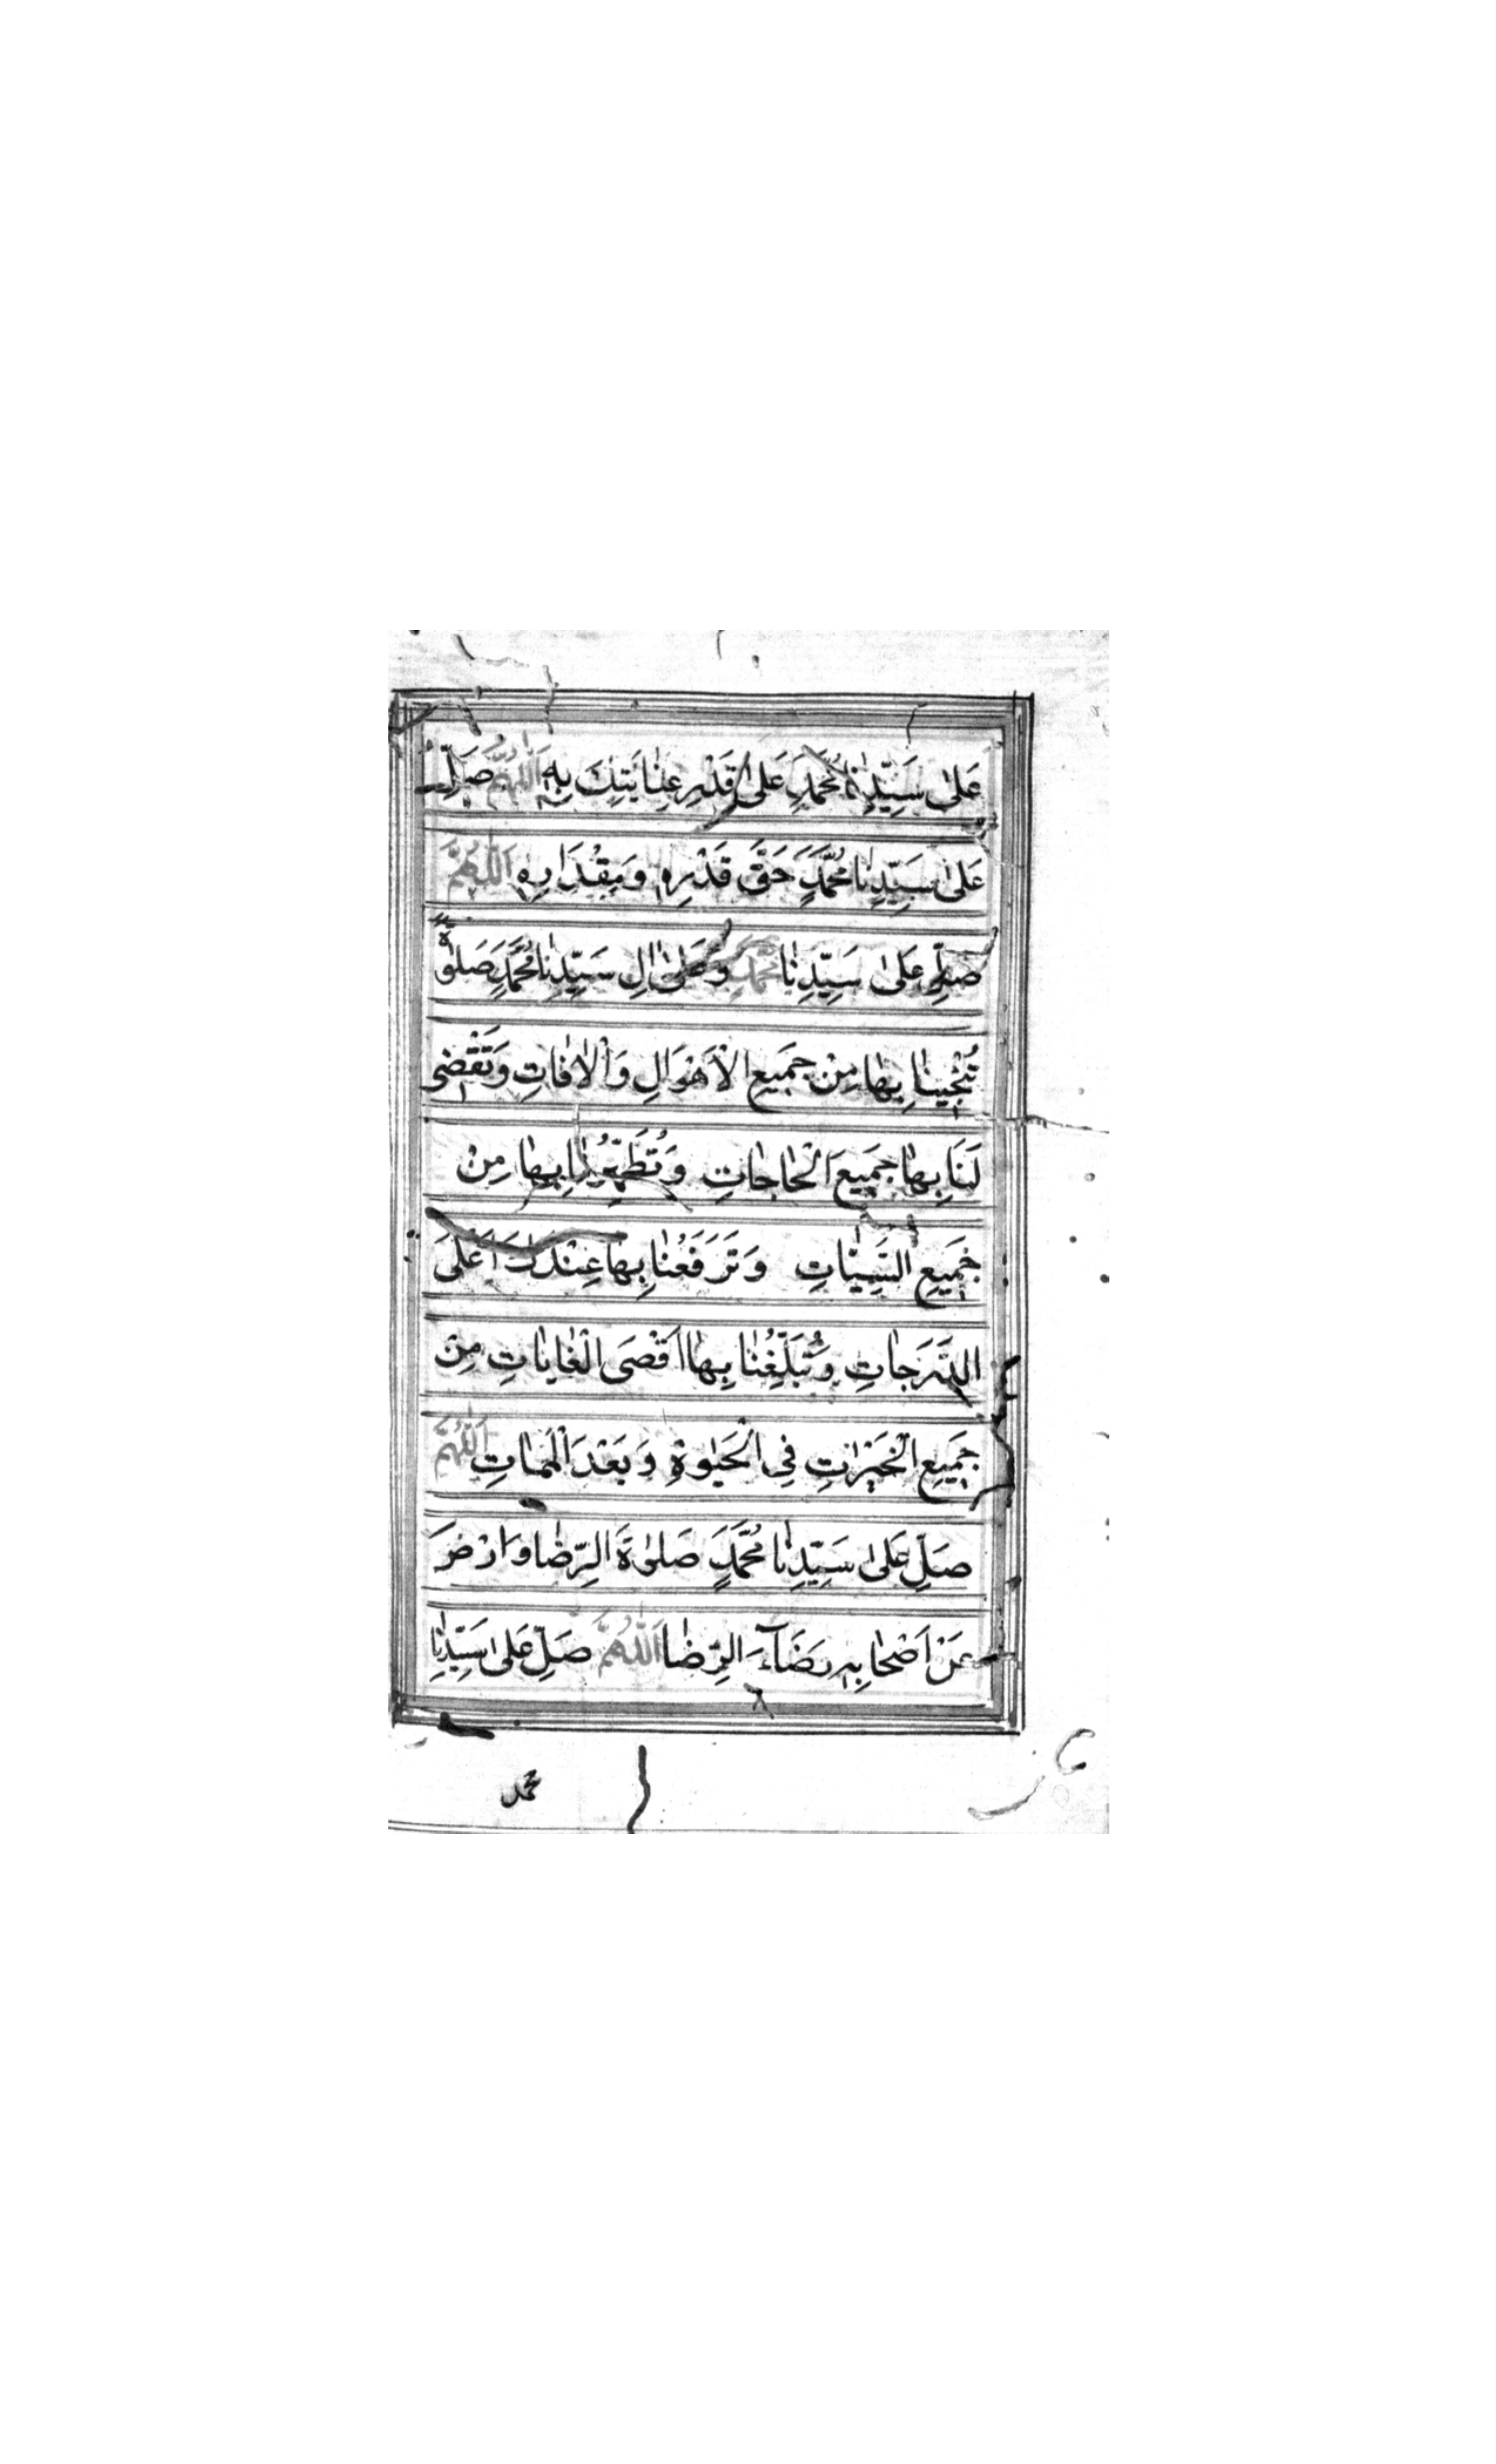 عَلٰى سَيِّدِنٰا مُحَمَّدٍ عَلٰى قَدْرِ عِنٰايَتِكَ بِهٖ اَللّٰهُمَّ صَلِّ
عَلٰى سَيِّدِنٰا مُحَمَّدٍ حَقَّ قَدْرِهٖ وَمِقْدَارِهٖ اَللّٰهُمَّ
صَلِّ عَلٰى سَيِّدِنٰا مُحَمَّدٍ وَعَلٰى اٰلِ سَيِّدِنٰا مُحَمَّدٍ صَلٰوةً
تُنْجِينٰا بِهٰا مِنْ جَمِيعِ الْاَهْوَالِ وَالْاٰفٰاتِ وَتَقْضِى
لَنَا بِهٰا جَمِيعَ الْحٰاجٰاتِ وَتُطَهِّرُنٰا بِهٰا مِنْ
جَمِيعِ السَّيِّئٰاتِ وَتَرْفَعُنٰا بِهٰا عِنْدَكَ اَعْلَى
الدَّرَجٰاتِ وَتُبَلِّغُنٰا بِهٰا اَقْصَى الْغٰايٰاتِ مِنْ
جَمِيعِ الْخَيْرٰاتِ فِى الْحَيٰوةِ وَبَعْدَ الْمَمٰاتِ اَللّٰهُمَّ
صَلِّ عَلٰى سَيِّدِنٰا مُحَمَّدٍ صَلٰوةَ الرِّضٰا وَارْضَ
عَنْ اَصْحٰابِهٖ رِضَآءَ الرِّضٰا اَللّٰهُمَّ صَلِّ عَلٰى سَيِّدِنٰا
محمد